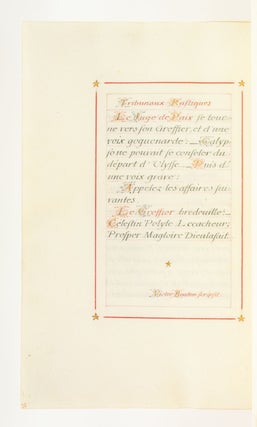 Tribunaux Rustiques
Le Juge de Paix se tour-
ne vers son Greffier, et d'une
voix goguenarde: _ Calyp-
so ne pouvait se consoler du
départ d'Ulysse _ Puis d'
une voix grave:
Appelez les affaires sui-
vantes.
Le Greffier bredouille: _
Célestin Polyte Lecacheur;
Prosper Magloire Dieulafait.
Victor Bouton scripsit